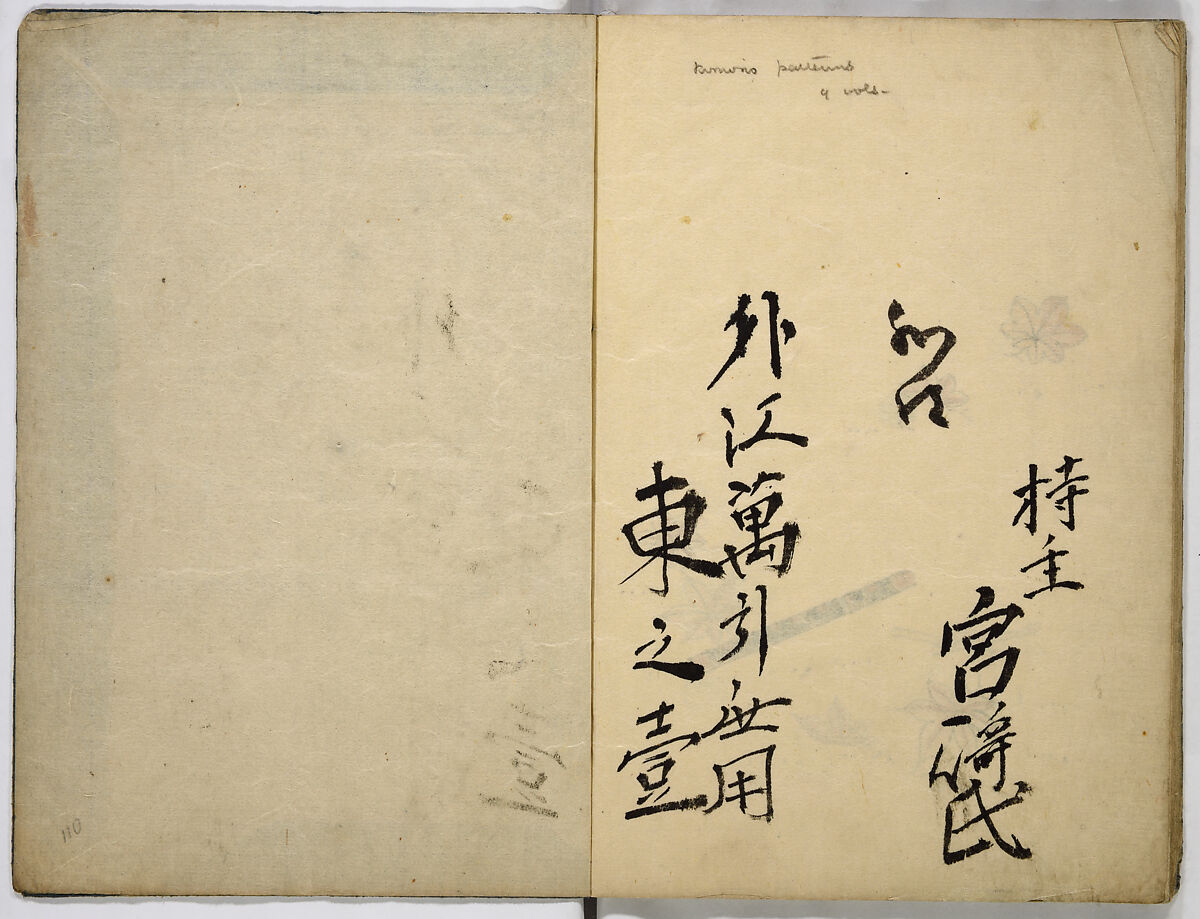 kimono patterns
9 vols.
持主
宮﨑氏
外江萬引無用
東之壹
110